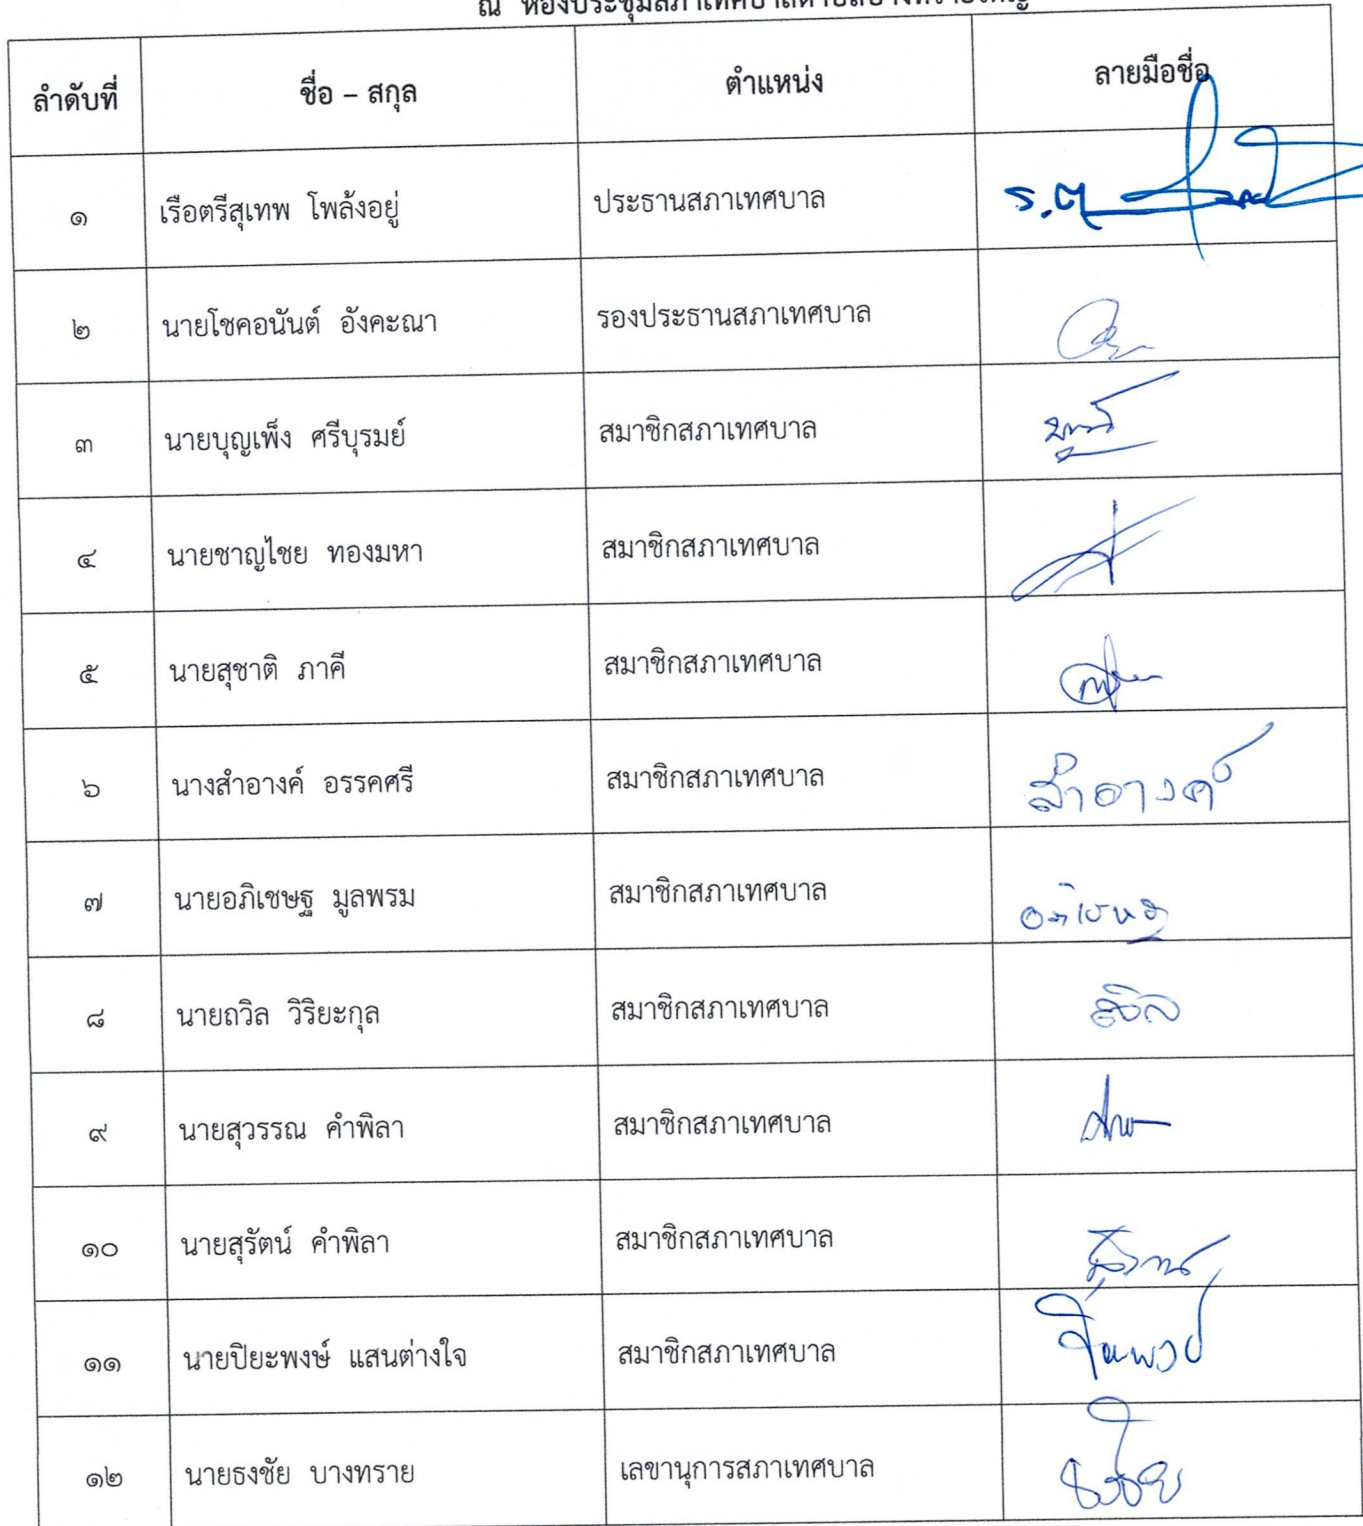 ณ ห้องประชุมสภาเทศบาลตำบลบางทรายใหญ่
ลำดับที่ ชื่อ – สกุล ตำแหน่ง ลายมือชื่อ
๑ เรือตรีสุเทพ โพล้งอยู่ ประธานสภาเทศบาล ร.ต
๒ นายโชคอนันต์ อังคะณา รองประธานสภาเทศบาล
๓ นายบุญเพ็ง ศรีบุรมย์ สมาชิกสภาเทศบาล
๔ นายชาญไชย ทองมหา สมาชิกสภาเทศบาล
๕ นายสุชาติ ภาคี สมาชิกสภาเทศบาล
๖ นางสำอางค์ อรรคศรี สมาชิกสภาเทศบาล สำอางค์
๗ นายอภิเชษฐ มูลพรม สมาชิกสภาเทศบาล อภิเชษฐ
๘ นายถวิล วิริยะกุล สมาชิกสภาเทศบาล ถวิล
๙ นายสุวรรณ คำพิลา สมาชิกสภาเทศบาล
๑๐ นายสุรัตน์ คำพิลา สมาชิกสภาเทศบาล
๑๑ นายปิยะพงษ์ แสนต่างใจ สมาชิกสภาเทศบาล
๑๒ นายธงชัย บางทราย เลขานุการสภาเทศบาล ธงชัย